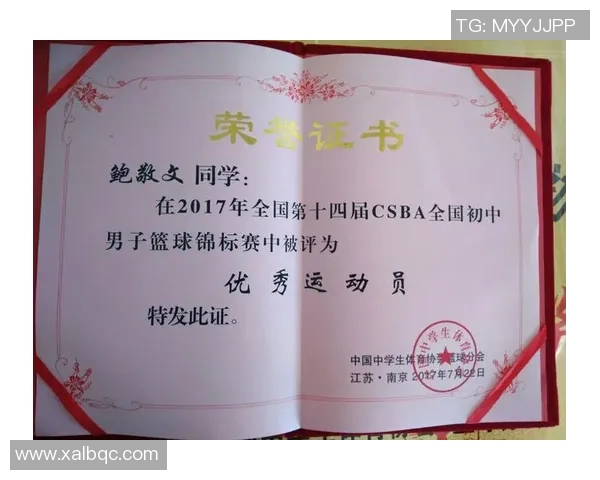 TG: MYYJJPP
荣誉证书
鲍敬文 同学：
在2017年全国第十四届CSBA全国初中
男子篮球锦标赛中被评为
优秀运动员
特发此证。
中国中学生体育协会篮球分会
江苏·南京 2017年7月22日
www.xalbqc.com